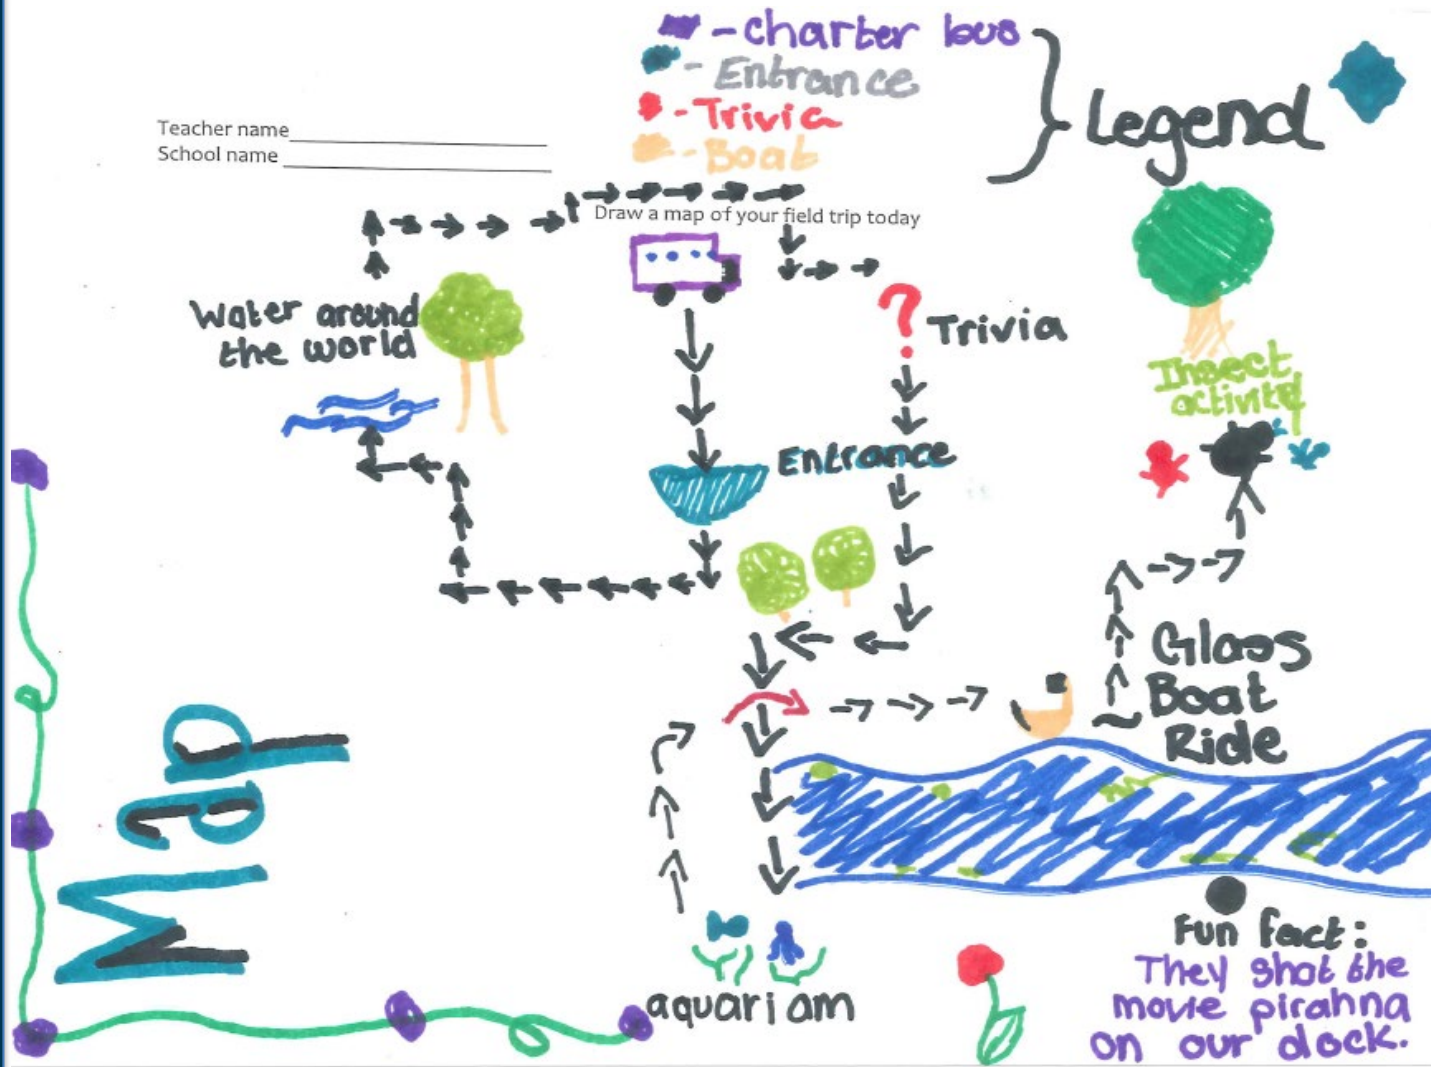 - charter bus
- Entrance
- Trivia
- Boat
Legend
Teacher name
School name
Draw a map of your field trip today
Water around
the world
?
Trivia
Insect
activity
Entrance
Glass
Boat
Ride
Map
aquariam
Fun fact:
They shot the
movie pirahna
on our dock.